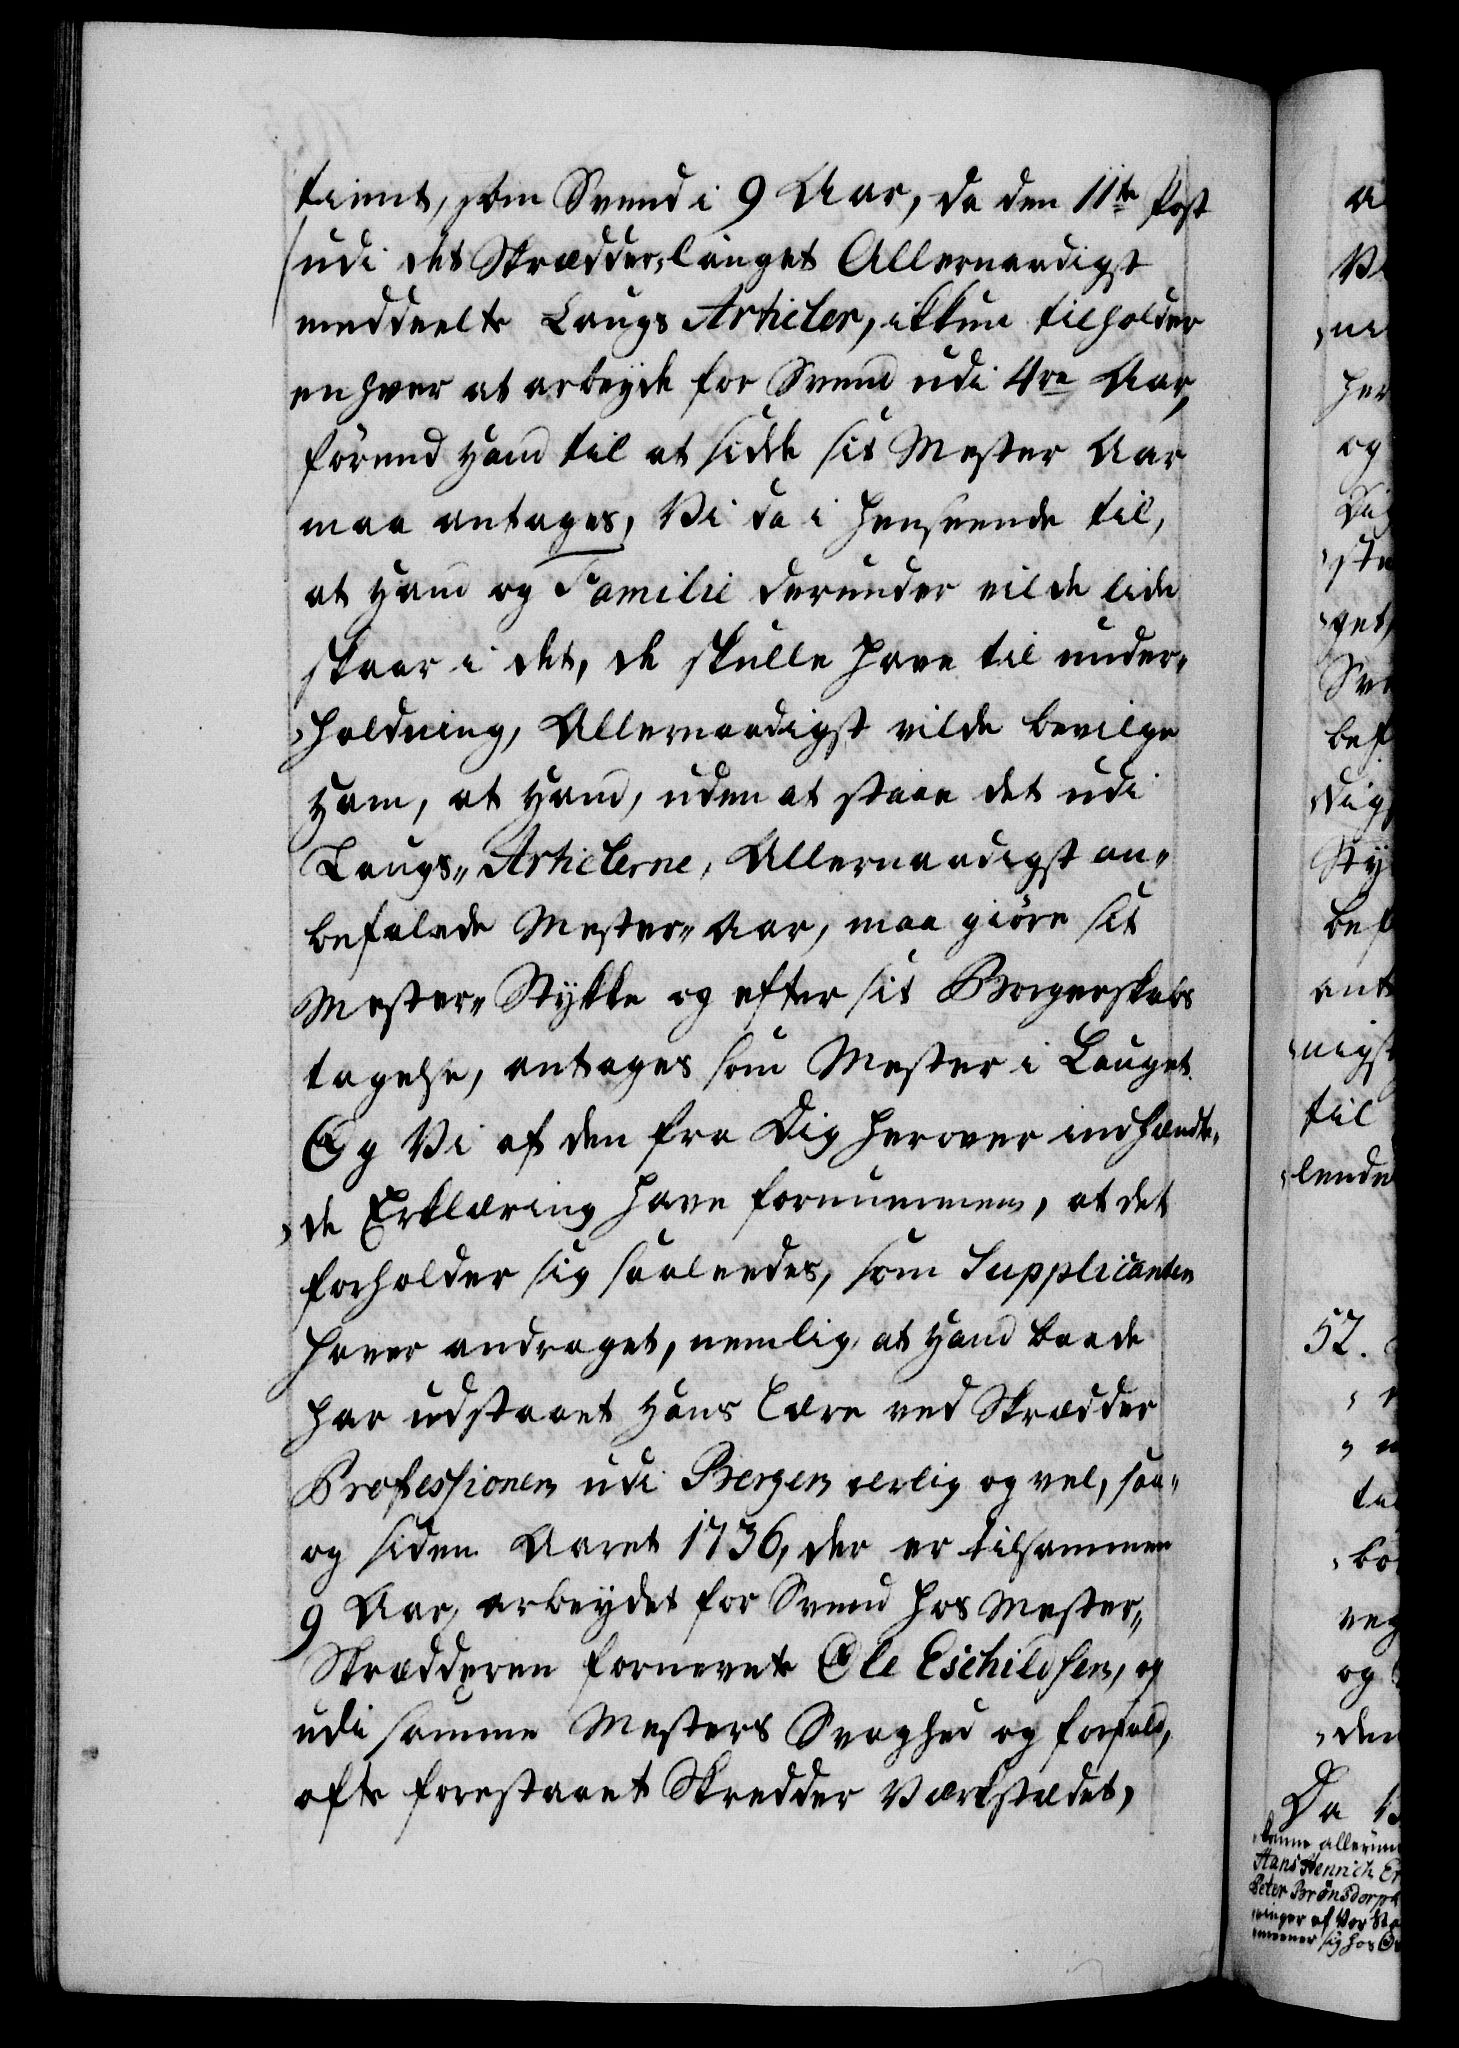 tiennt, som Svend i 9 Aar, da den 11te Post
udi det Skrædder-lauget Allernaadigst
meddeelte Laugs Articler, ikkun tilholder
enhver at arbeyde for Svend udi 4re Aar,
førend Hand til at sidde sit Mester Aar
maa antages, Vi da i henseende til,
at Hand og Familie derunder vilde lide
skaar i det, de skulle have til under„
„holdning, Allernaadigst vilde bevilge
Ham, at Hand, uden at staae det udi
Laugs„Articlerne, Allernaadigst an„
befalede Mester„Aar, maa giøre sit
Mester„Stykke og efter sit Borgerskabs
tagelse, antages som Mester i Lauget.
Og Vi af den fra Dig herover indhændte„
„de Erklæring have fornummen, at det
forholder sig saaleedes, som Supplicanten
haver andraget, nemlig, at Hand baade
har udstaaet Hans Lære ved Skrædder
Professionen udi Bergen ærlig og vel, saa„
og siden Aaret 1736, der er tilsammen
9 Aar, arbeydet for Svend hos Mester„
Skrædderen fornevnte Ole Eschildsen, og
udi samme Mesters Svaghed og forfald,
ofte forestaaet Skredder Værkstædet,
52.
og
til
Da
Hans Henrich
Peter Brønsdorph